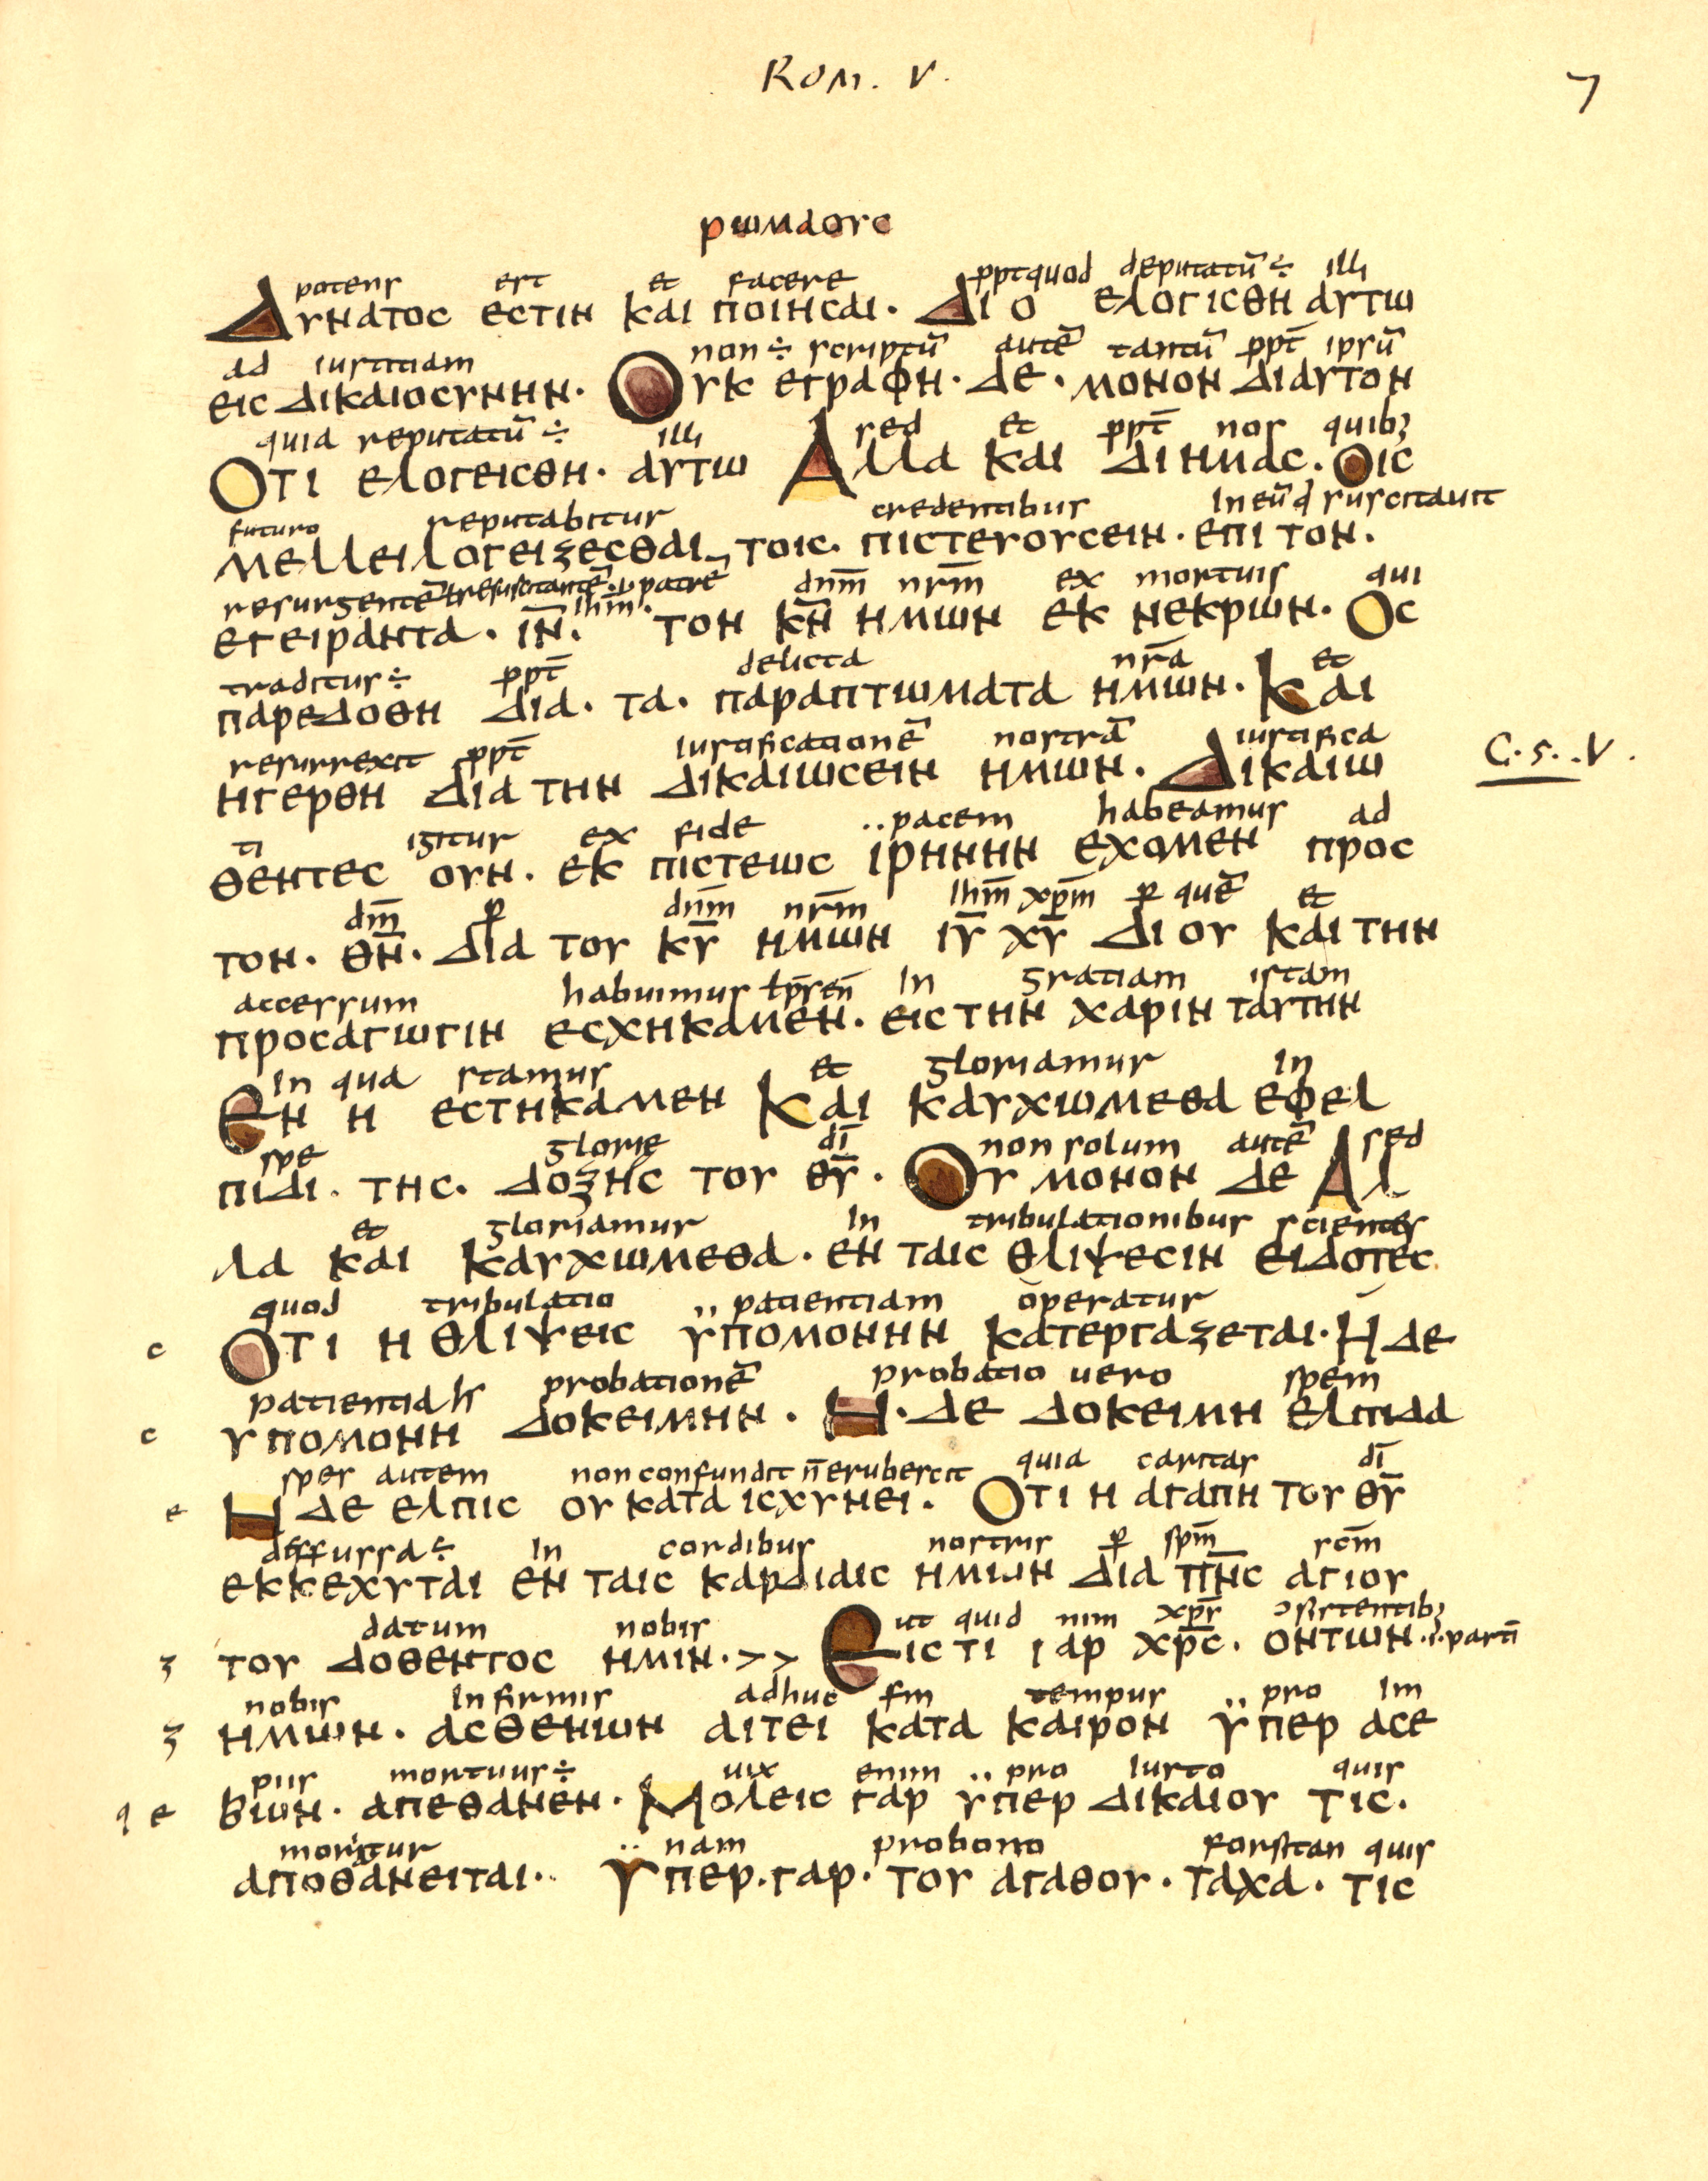 Rom. V.
7
ΡΩΜΑΟΥC
potens est et facere pptquod deputatū ÷ illi
ΔΥΝΑΤΟC ΕCΤΙΝ ΚΑΙ ΠΟΙΗCΑΙ· ΔΙ Ο ΕΛΟΓΙCΘΗ ΑΥΤΩ
ad iustitiam non ÷ scriptū autē tantū ppt̄ ipsū
ΕΙC ΔΙΚΑΙΟCΥΝΗΝ· ΟΥΚ ΕΓΡΑΦΗ· ΔΕ· ΜΟΝΟΝ ΔΙΑΥΤΟΝ
quia reputatū ÷ illi sed et ppt̄ nos quibꝫ
ΟΤΙ ΕΛΟΓΕΙCΘΗ· ΑΥΤΩ ΑΛΛΑ ΚΑΙ ΔΙ ΗΜΑC· ΟΙC
futuro reputabitur credentibus In eū q suscitauit
ΜΕΛΛΕΙ ΛΟΓΕΙΖΕCΘΑΙ ΤΟΙC· ΠΙCΤΕΥΟΥCΕΙΝ· ΕΠΙ ΤΟΝ·
resurgentē ł resuscitantē patrē ihm̄ dnm̄ nrm̄ ex mortuis qui
ΕΓΕΙΡΑΝΤΑ· ΙΝ̄· ΤΟΝ ΚΝ̄ ΗΜΩΝ ΕΚ ΝΕΚΡΩΝ· ΟC
traditur ÷ ppt̄ delicta nrā et
ΠΑΡΕΔΟΘΗ ΔΙΑ· ΤΑ· ΠΑΡΑΠΤΩΜΑΤΑ ΗΜΩΝ· ΚΑΙ
resurrexit ppt̄ iustificationē nostrā iustifica
ΗΓΕΡΘΗ ΔΙΑ ΤΗΝ ΔΙΚΑΙΩCΕΙΝ ΗΜΩΝ· ΔΙΚΑΙΩ
C. 5. .V.
ti igitur ex fide ·· pacem habeamus ad
ΘΕΝΤΕC ΟΥΝ· ΕΚ ΠΙCΤΕΩC ΙΡΗΝΗΝ ΕΧΟΜΕΝ ΠΡΟC
dm̄ ꝑ dnm̄ nrm̄ Ihm̄ xpm̄ ꝑ quē et
ΤΟΝ· ΘΝ̄· ΔΙΑ ΤΟΥ ΚῩ ΗΜΩΝ ΙῩ ΧῩ ΔΙ ΟΥ ΚΑΙ ΤΗΝ
accessum habuimus ł p̄sen̄ In gratiam istam
ΠΡΟCΑΓΩΓΙΝ ΕCΧΗΚΑΜΕΝ· ΕΙC ΤΗΝ ΧΑΡΙΝ ΤΑΥΤΗΝ
In qua stamus et gloriamur In
ΕΝ Η ΕCΤΗΚΑΜΕΝ ΚΑΙ ΚΑΥΧΩΜΕΘΑ ΕΦΕΛ
spe glorie dī non solum autē sed
ΠΙΔΙ· ΤΗC· ΔΟΞΗC ΤΟΥ ΘῩ· ΟΥ ΜΟΝΟΝ ΔΕ ΑΛ
et gloriamur In tribulationibus scientes
ΛΑ ΚΑΙ ΚΑΥΧΩΜΕΘΑ· ΕΝ ΤΑΙC ΘΛΙΨΕCΙΝ ΕΙΔΟΤΕC
quod tribulatio ·· patientiam operatur
c ΟΤΙ Η ΘΛΙΨΕΙC ΥΠΟΜΟΝΗΝ ΚΑΤΕΡΓΑΖΕΤΑΙ· Η ΔΕ
patientia probationē probatio uero spem
c ΥΠΟΜΟΝΗ ΔΟΚΕΙΜΗΝ· Η· ΔΕ ΔΟΚΕΙΜΗ ΕΛΠΙΔΑ
spes autem non confundit n̄ erubescit quia caritas dī
e Η ΔΕ ΕΛΠΙC ΟΥ ΚΑΤΑΙCΧΥΝΕΙ· ΟΤΙ Η ΑΓΑΠΗ ΤΟΥ ΘῩ
diffussa ÷ In cordibus nostris ꝑ spm̄ scm̄
ΕΚΚΕΧΥΤΑΙ ΕΝ ΤΑΙC ΚΑΡΔΙΑΙC ΗΜΩΝ ΔΙΑ ΠΝ̄C ΑΓΙΟΥ
datum nobis ut quid nim xpr̄ ɔsistentibꝫ
ʒ ΤΟΥ ΔΟΘΕΝΤΟC ΗΜΙΝ·>> ΕΙC ΤΙ ΓΑΡ ΧΡ̄C· ΟΝΤΩΝ· partī
nobis Infirmis adhuc tempus ·· pro Im
ʒ ΗΜΩΝ· ΑCΘΕΝΩΝ ΑΙΤΕΙ ΚΑΤΑ ΚΑΙΡΟΝ ΥΠΕΡ ΑCΕ
piis mortuus ÷ uix enim ·· pro Iusto quis
q e ΒΩΝ· ΑΠΕΘΑΝΕΝ· ΜΟΛΕΙC ΓΑΡ ΥΠΕΡ ΔΙΚΑΙΟΥ ΤΙC·
moritur ·· nam pro bono forsitan quis
ΑΠΟΘΑΝΕΙΤΑΙ·· ΥΠΕΡ·ΓΑΡ· ΤΟΥ ΑΓΑΘΟΥ· ΤΑΧΑ· ΤΙC